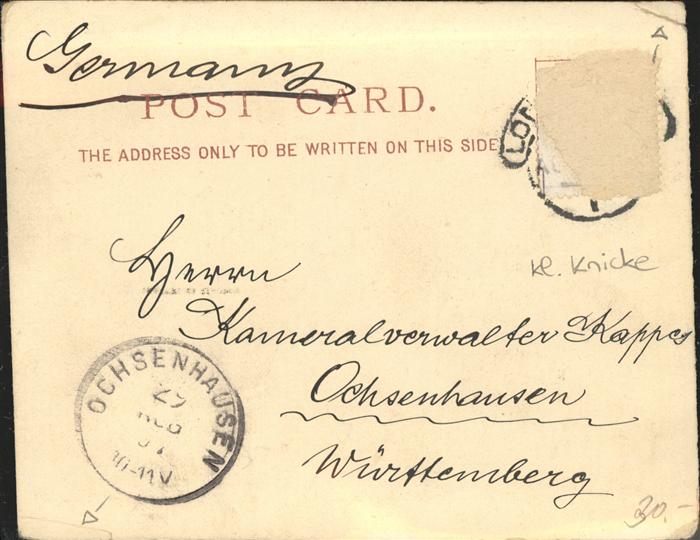 Germany
POST CARD.
THE ADDRESS ONLY TO BE WRITTEN ON THIS SIDE
LO
kl. Knicke
Herrn
Kameralverwalter Kappes
Ochsenhausen
Württemberg
OCHSENHAUSEN
29
AUG
10-11V
30.-